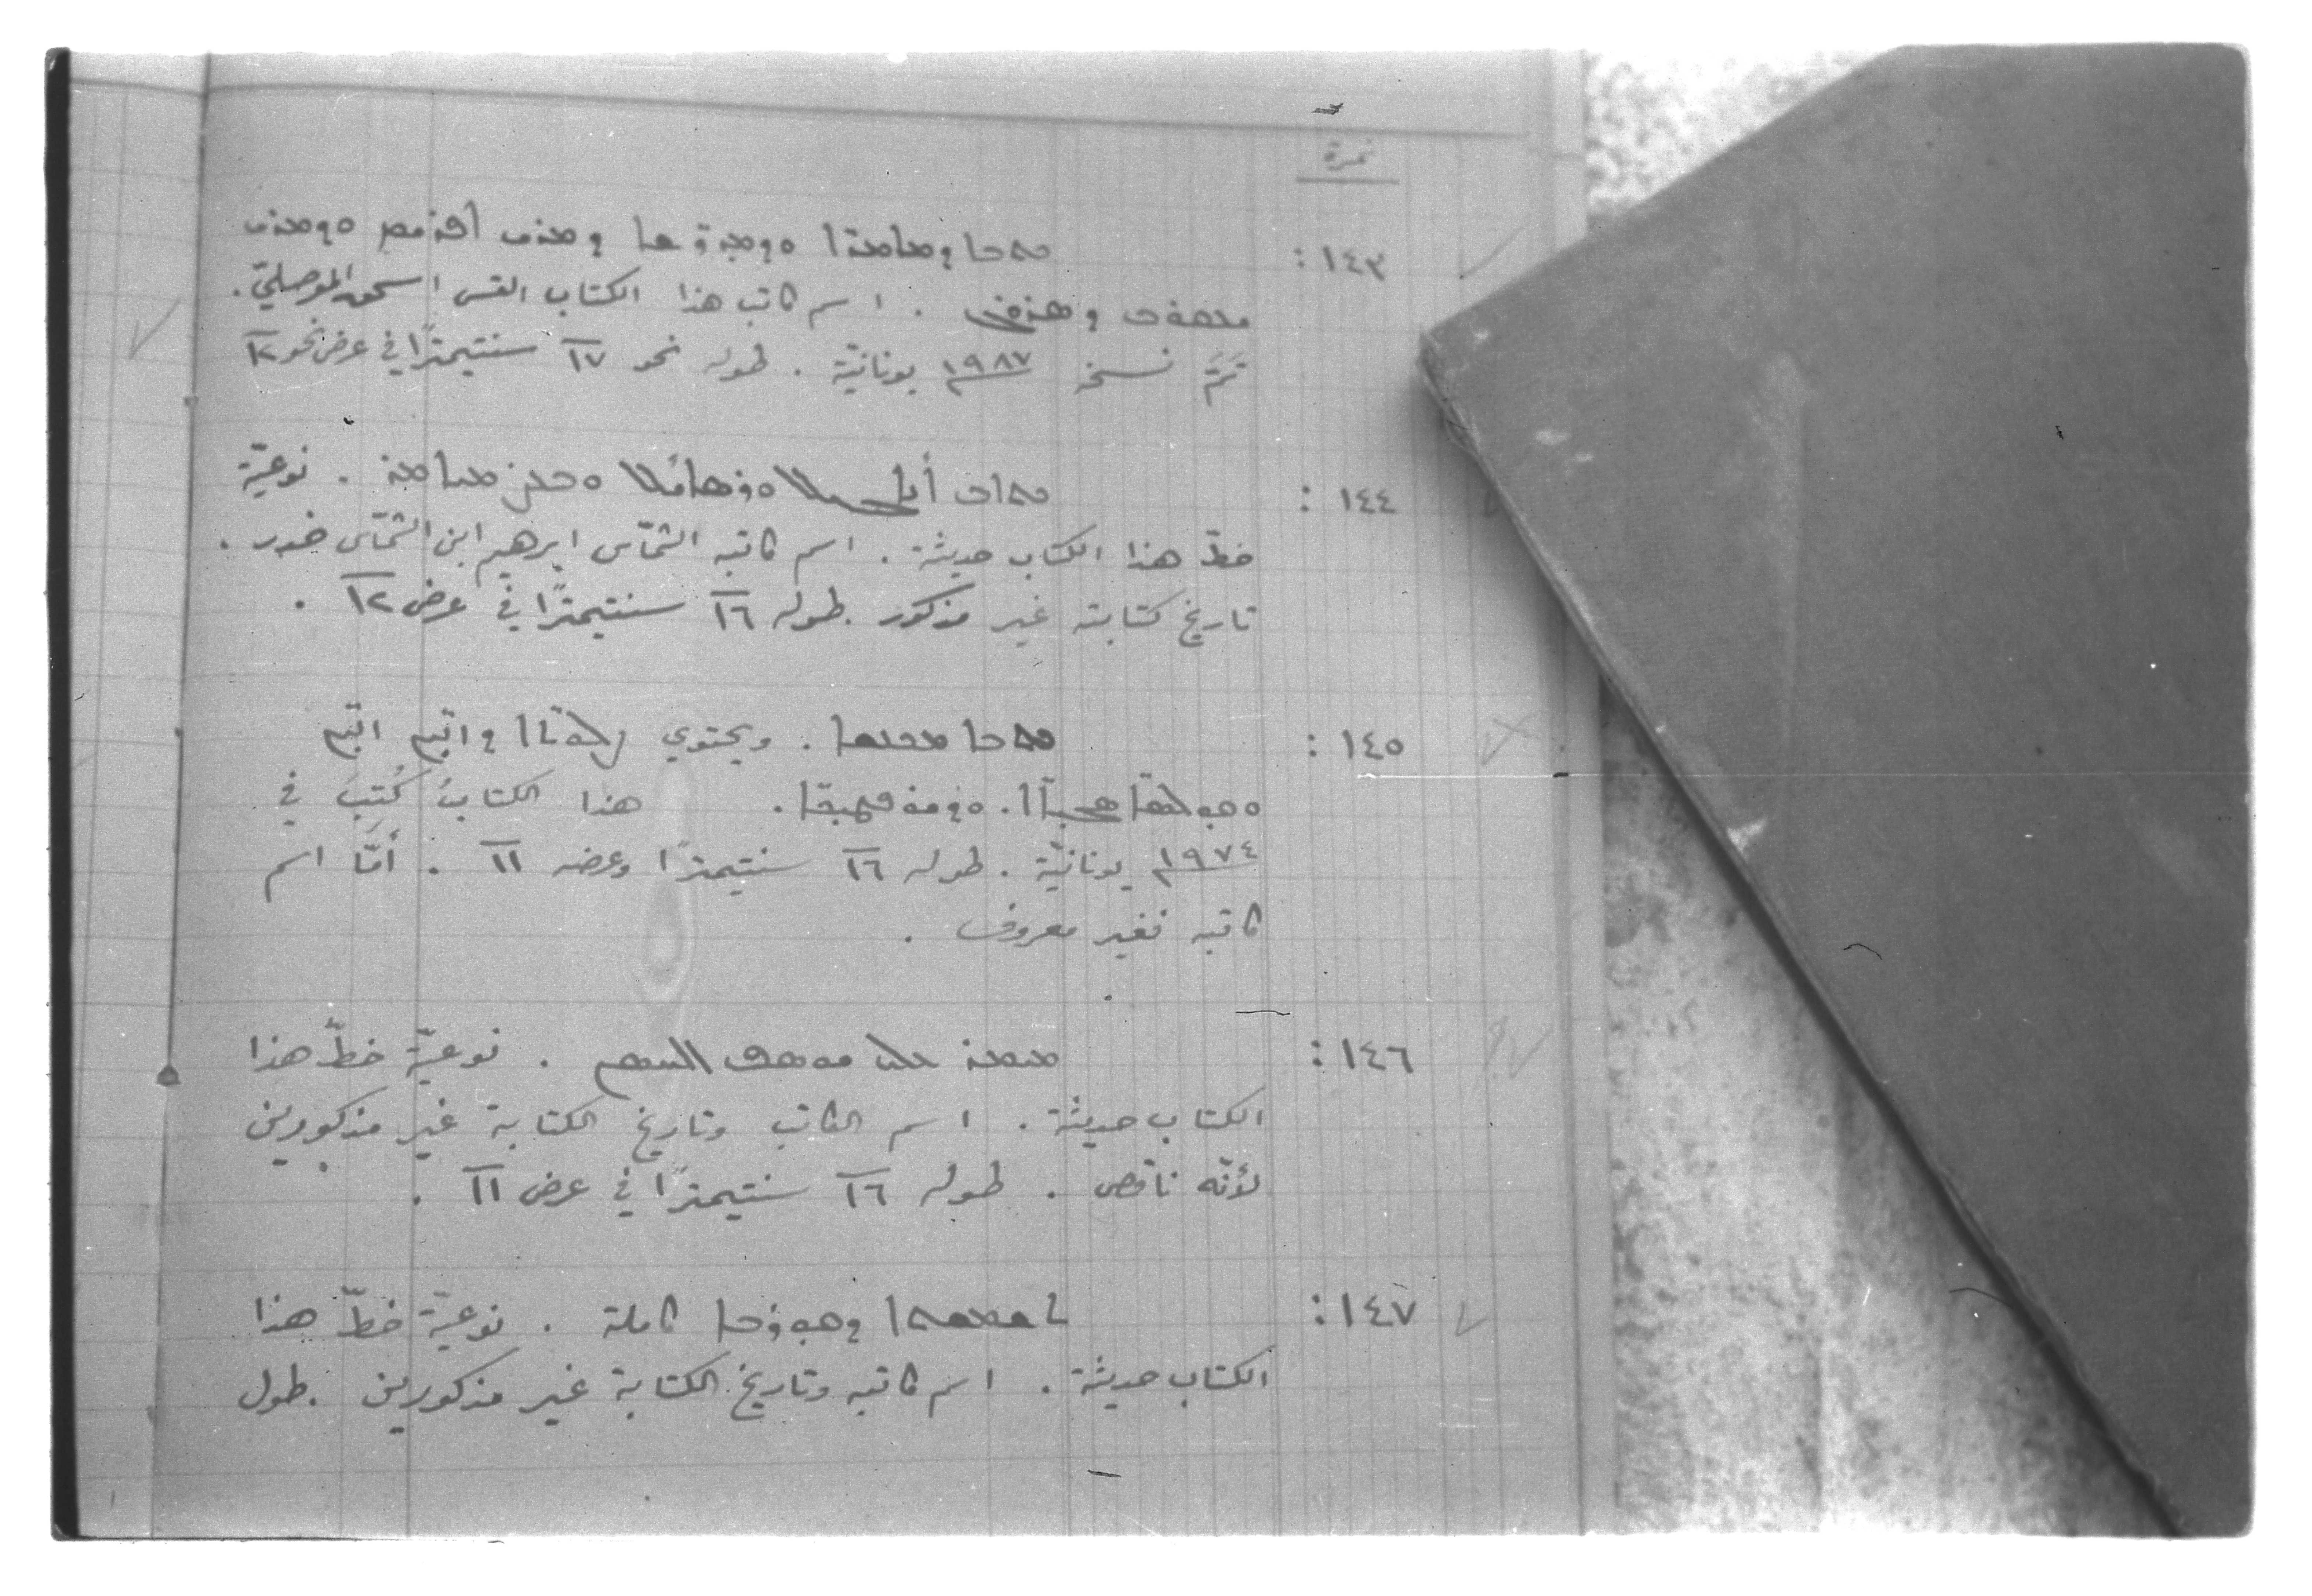 نمرة
١٤٣ : ܟܬܒܐ ܕܡܐܡܪ̈ܐ ܘܕܡܕܪ̈ܫܐ ܕܡܪܝ ܐܦܪܝܡ ܘܕܡܪܝ
ܝܥܩܘܒ ܕܣܪܘܓ . اسم كاتب هذا الكتاب القس اسحق الموصليّ .
تَمَّ نسخه ١٩٨٧ يونانيّة . طوله نحو ١٧ سنتيمترًا في عرض نحو ١٢
١٤٤ : . نوعيّة
خطّ هذا الكتاب حديثة . اسم كاتبه الشمّاس ابرهيم ابن الشمّاس خدر .
تاريخ كتابته غير مذكور . طوله ١٦ سنتيمترًا في عرض ١٢ .
١٤٥ : ܟܬܒܐ . ويحتوي ܨܠܘ̈ܬܐ
. هذا الكتابُ كُتِبَ في
١٩٧٤ يونانيّة . طوله ١٦ سنتيمترًا وعرضه ١١ . أمّا اسم
كاتبه فغير معروف .
١٤٦ : . نوعيّة خطّ هذا
الكتاب حديثة . اسم الكاتب وتاريخ الكتابة غير مذكورين
لأنّه ناقص . طوله ١٦ سنتيمترًا في عرض ١١ .
١٤٧ : ܬܫܡܫܬܐ ܕܣܘܪܟܐ كاملة . نوعيّة خطّ هذا
الكتاب حديثة . اسم كاتبه وتاريخ الكتابة غير مذكورين . طول